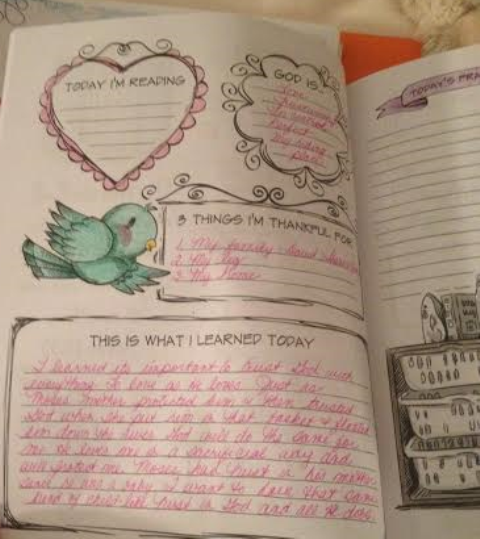 TODAY I'M READING
GOD IS
Love
perfect
my hiding
place
TODAY'S PRA
3 THINGS I'M THANKFUL FOR
1. My family
2. My
3. My Home
THIS IS WHAT I LEARNED TODAY
I learned its important to trust God with
everything. To love as He loves. Just as
Moses mother him & then trusted
God when she put him in that basket &
him down the river God will do the same for
me. He loves me in a sacrificial way and
will protect me. Moses had trust in his mother
and he was a baby. I want to have that same
kind of child like trust in God and all He does.